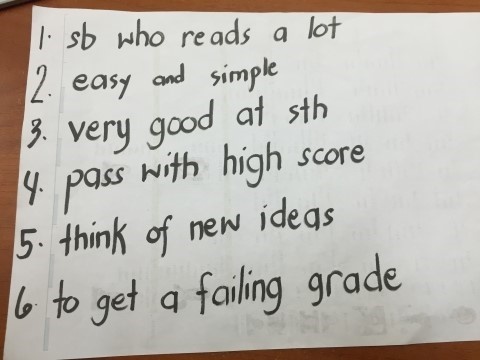 1. sb who reads a lot
2. easy and simple
3. very good at sth
4. pass with high score
5. think of new ideas
6. to get a failing grade